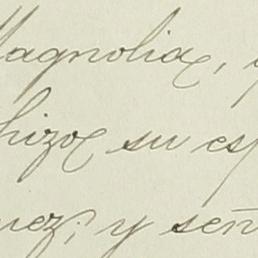 Magnolia, y
hizo su esp
nez; y señ